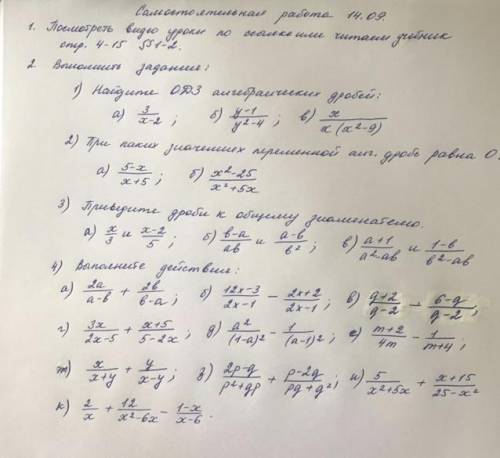 Самостоятельная работа 14.09.
1. Посмотреть видео уроки по ссылке или читаем учебник
стр. 4-15 §§1-2.
2. Выполнить задание:
1) Найдите ОДЗ алгебраических дробей:
а) 3/(x-2); б) (y-1)/(y²-4); в) x/(x(x²-9))
2) При каких значениях переменной алг. дробь равна 0.
а) (5-x)/(x+5); б) (x²-25)/(x²+5x)
3) Приведите дроби к общему знаменателю.
а) x/3 и (x-2)/5; б) (b-a)/(ab) и (a-b)/b²; в) (a+1)/(a²-ab) и (1-b)/(b²-ab)
4) Выполните действия:
а) 2a/(a-b) + 2b/(b-a); б) (12x-3)/(2x-1) - (2x+2)/(2x-1); в) (g+2)/(g-2) - (6-g)/(g-2);
г) 3x/(2x-5) + (x+5)/(5-2x); д) a²/(1-a)² - 1/(a-1)²; е) (m+2)/(4m) - 1/(m+4);
ж) x/(x+y) + y/(x-y); з) (2p-g)/(p²+gp) + (p-2g)/(pg+g²); и) 5/(x²+5x) + (x+15)/(25-x²)
к) 2/x + 12/(x²-6x) - (1-x)/(x-6).